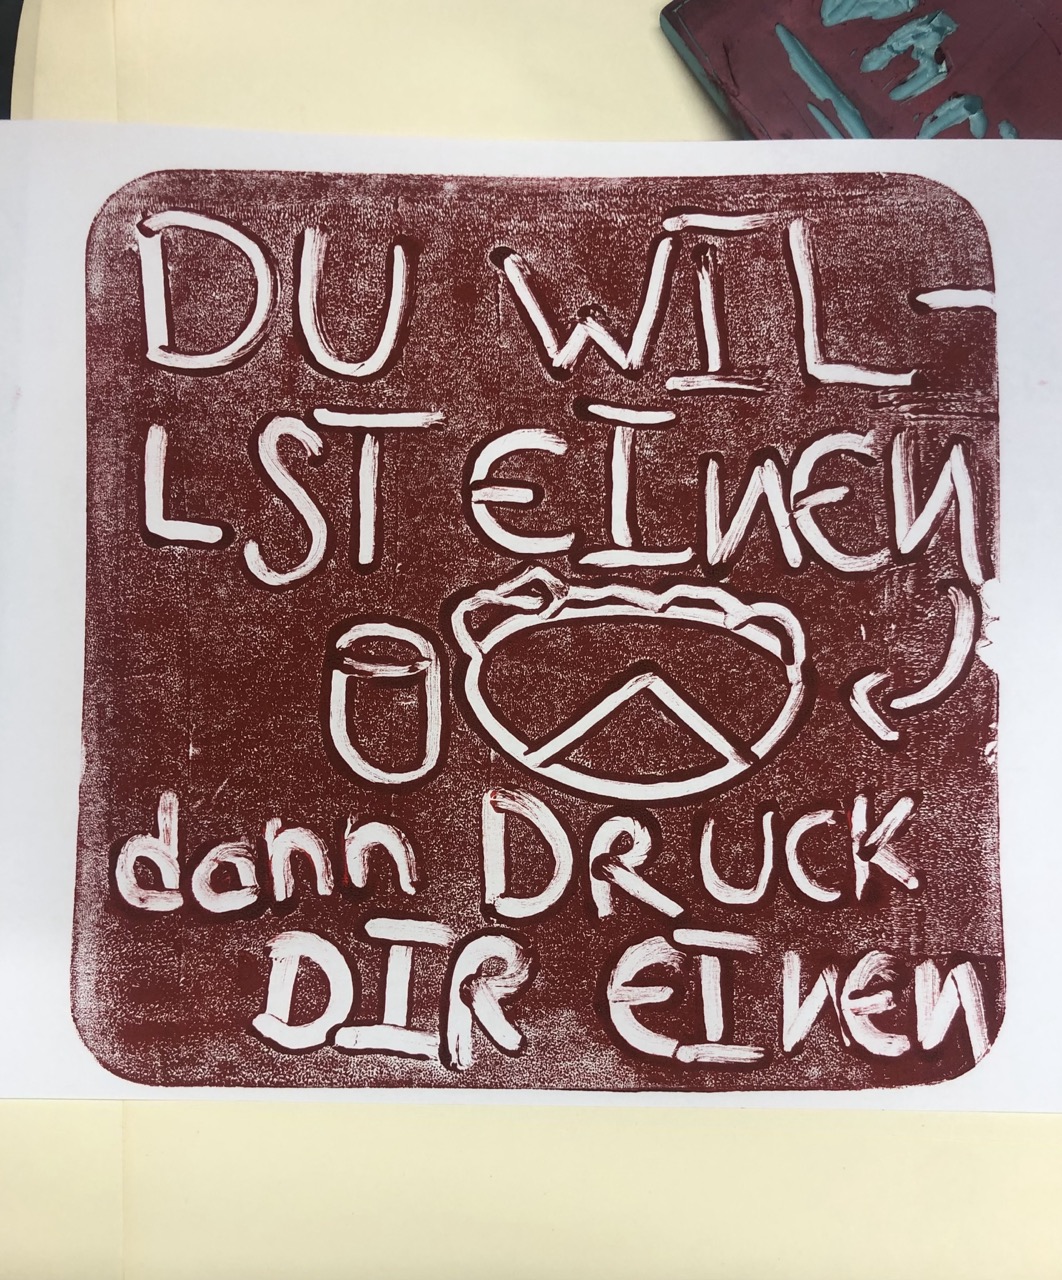 DU WIL-
LST EINEN
dann DRUCK
DIR EINEN